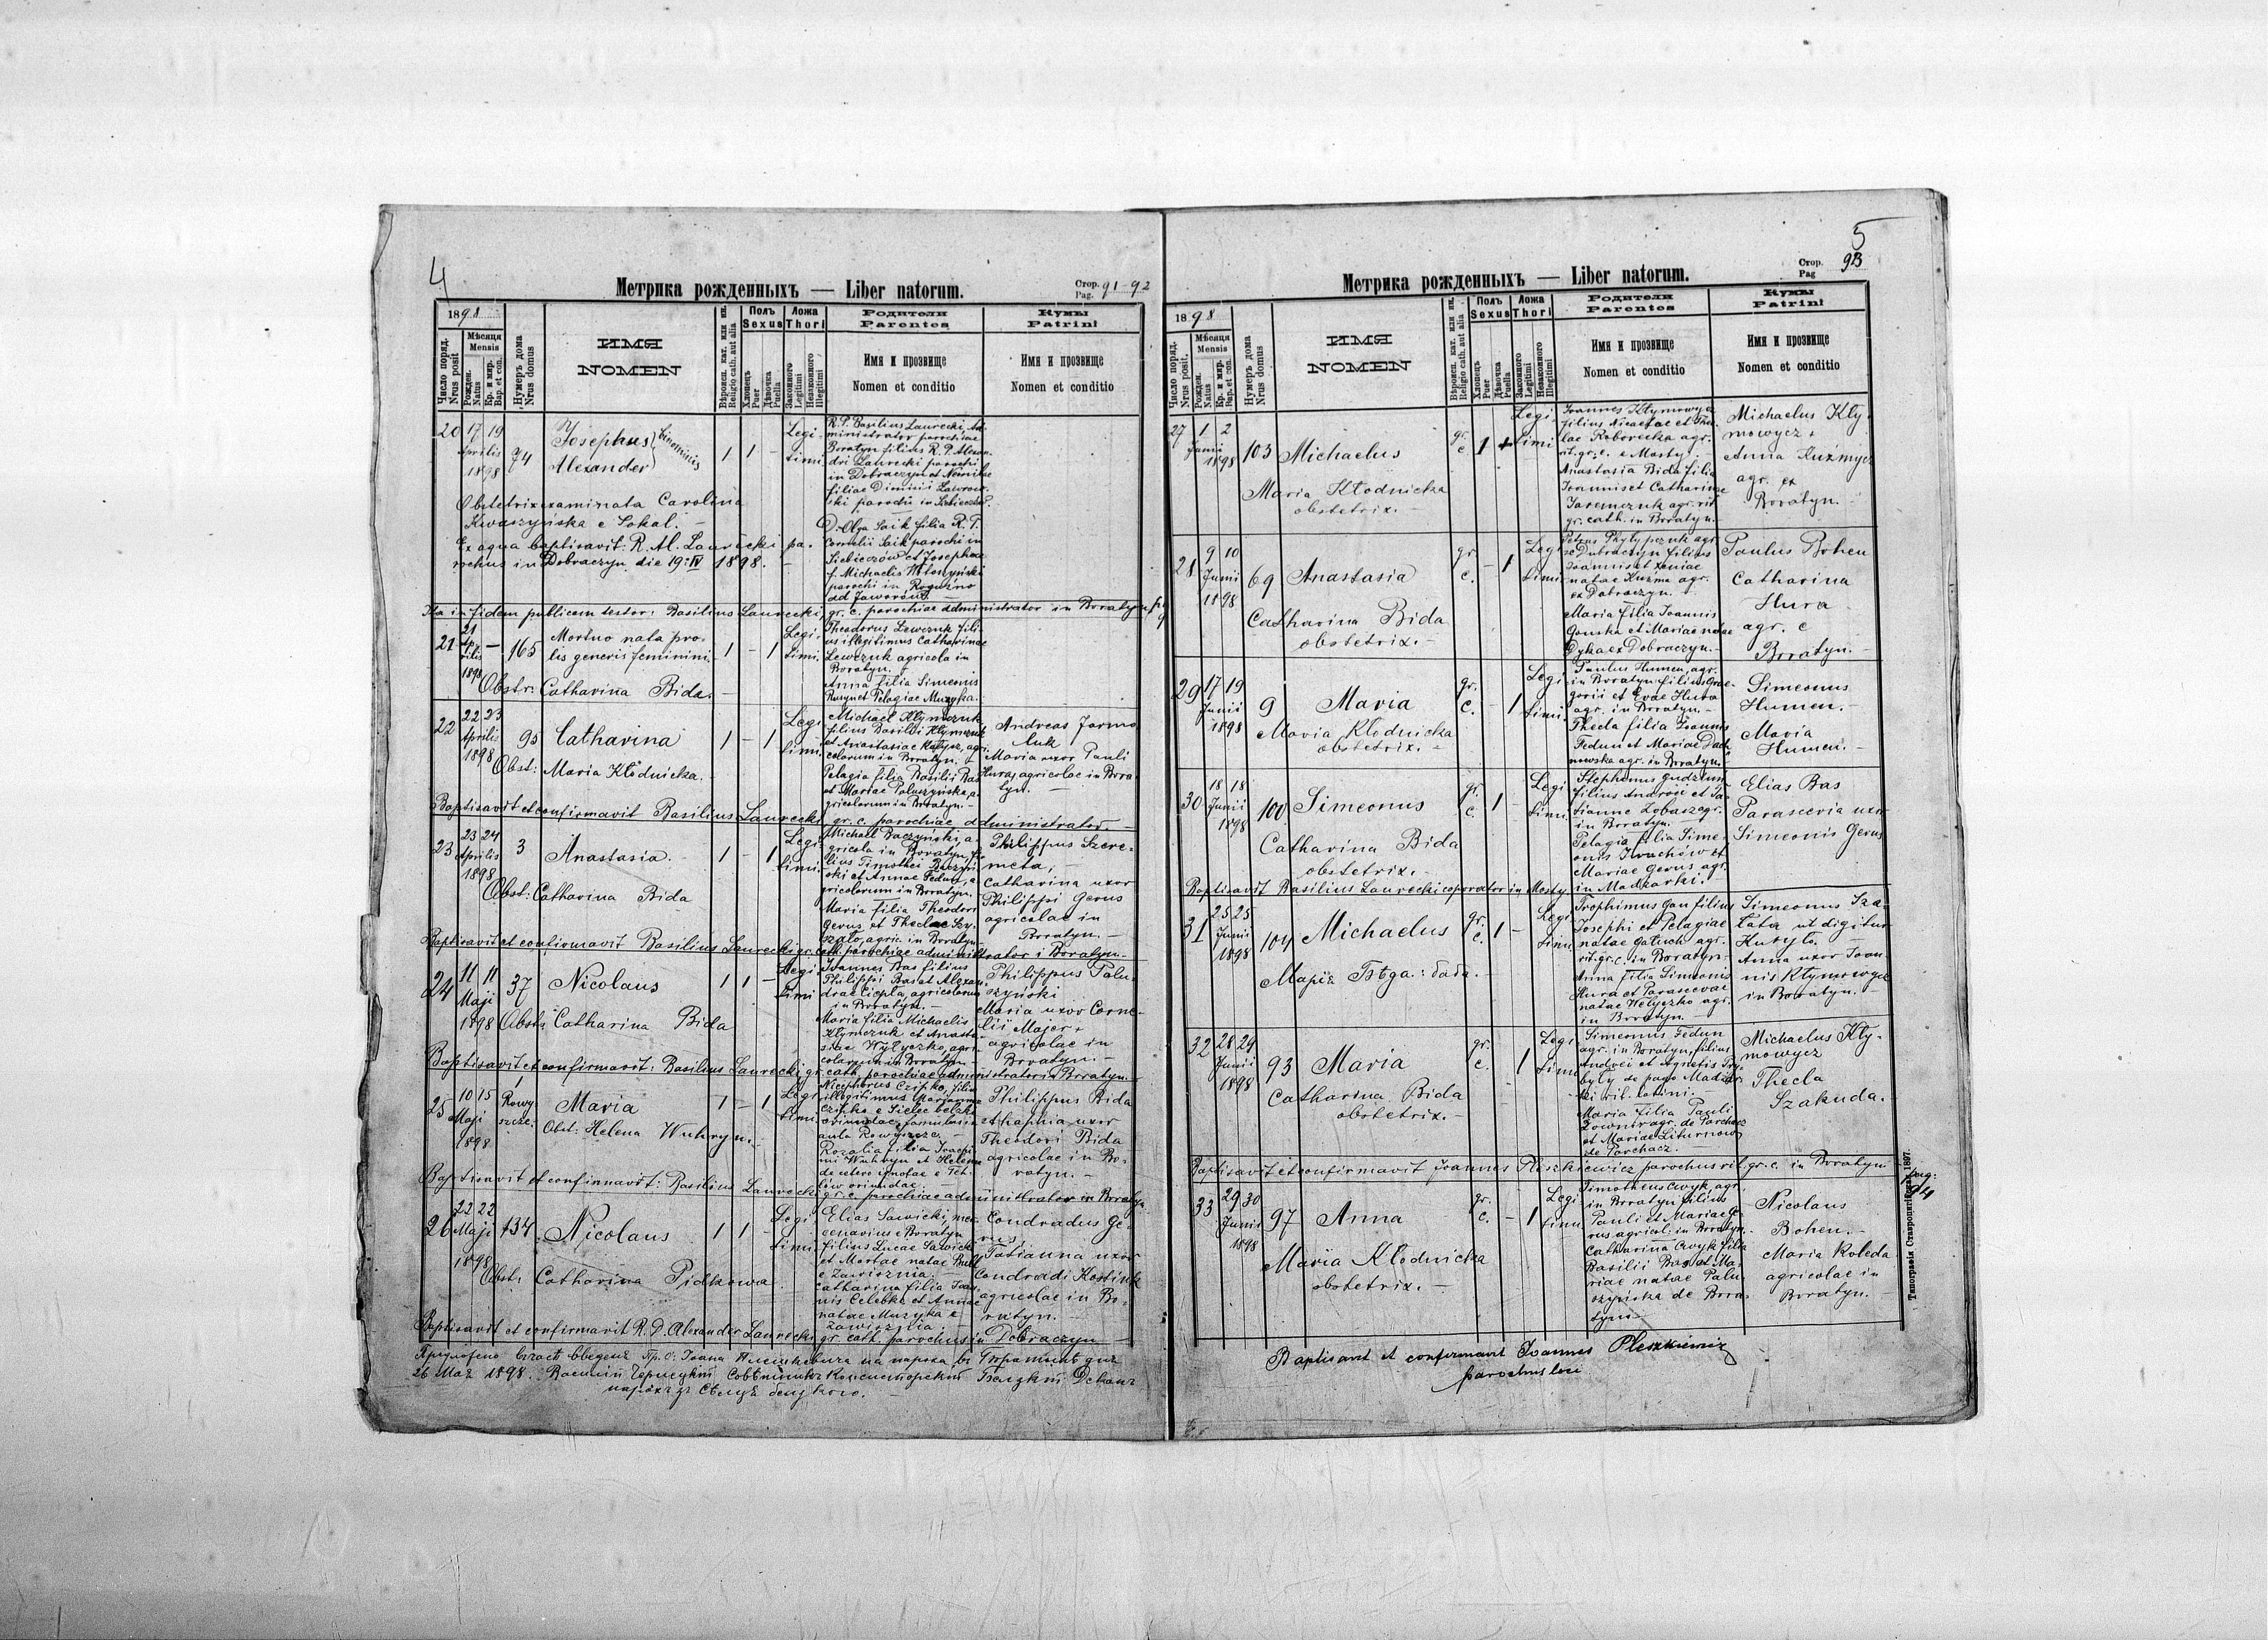 4
Метрика рожденныхъ — Liber natorum.
Стор. Pag. 91-92
1898
Число поряд. Nrus posit
Мѣсяця Mensis
Рожден. Natus
Кр. и мир. Bap. et con.
Нумеръ дома Nrus domus
ИМЯ
NOMEN
Вѣроисп. кат. или ин. Religio cath. aut alia
Полъ Sexus
Хлопець Puer
Дѣвочка Puella
Ложа Thori
Законного Legitimi
Незаконного Illegitimi
Родители
Parentes
Имя и прозвище
Nomen et conditio
Кумы
Patrini
Имя и прозвище
Nomen et conditio
20 17 19 Aprilis 1898 74
Josephus Alexander binominis
1 1 - Legitimi
R. P. Basilius Laurecki, Ad-
ministrator parochiae
Boratyn filius R. P. Alexan-
dri Laurecki parochi
in Dobraczyn et
filiae
D. Olga Saik filia R. P.
Cornelii Saik parochi in
Siebieczów et Josephae
f. Michaelis
parochi in Rogużno
ad Jaworów. —
Obstetrix examinata Carolina
Kwaszyńska e Sokal. —
Ex aqua baptisavit: R. Al. Laurecki pa-
rochus in Dobraczyn die 19: IV 1898. —
Ita in fidem publicam testor: Basilius Laurecki, gr. c. parochiae administrator in Boratyn
21 21 Aprilis 1898 — 165
Mortuo nata pro-
lis generis feminini
1 - 1 Legitimi
Theodorus Lewczuk fili-
us illegitimus Catharinae
Lewczuk agricola in
Boratyn. +
Anna filia Simeonis
et Pelagiae Muzyka.
Obstr: Catharina Bida. —
22 22 23 Aprilis 1898 95
Catharina
1 - 1 Legitimi
Michael Klymczuk
filius Basilii Klymczuk
et Anastasiae
colarum in Boratyn. +
Pelagia filia Basilii Bas
et Mariae Paluszyńska, a-
gricolarum in Boratyn. —
Andreas Jarmo-
luk
Maria uxor Pauli
Hura, agricolae in Bora-
tyn. —
Obst: Maria Kłodnicka. —
Baptisavit et confirmavit Basilius Laurecki, gr. c. parochiae administrator. —
23 23 24 Aprilis 1898 3
Anastasia. —
1 - 1 Legitimi
Michael Baczyński, a-
gricola in Boratyn, fi-
lius Timothei Baczyń-
ski et Annae Fedun, a-
gricolarum in Boratyn.
Maria filia Theodori
Gerus, et Theclae
agric. in Boratyn. —
Philippus Szere-
meta, —
Catharina uxor
Philippi Gerus
agricolae in
Boratyn. —
Obst: Catharina Bida
Baptisavit et confirmavit Basilius Laurecki gr. cath. parochiae administrator i Boratyn. —
24 11 11 Maji 1898 37
Nicolaus
1 1 - Legitimi
Joannes Bas filius
Philippi Bas et Alexan-
drae Ciepla, agricolarum
in Boratyn. —
Maria filia Michaelis
Klymczuk et Anasta-
siae Wylyczko, agri-
colarum in Boratyn —
Philippus Palu-
szyński
Maria uxor Corne-
lii Majer +
agricolae in
Boratyn. —
Obstr. Catharina Bida
Baptisavit et confirmavit: Basilius Laurecki, gr. cath. parochiae administrator in Boratyn. —
25 10 15 Maji 1898 1 Rowyszcze
Maria
1 - 1 Legitimi
Nicephorus Czipko, filius
illegitimus Mariannae
Czipko e Sielec belski
oriundae,
aula Rowyszcze. —
Rozalia filia Joachi-
mi Wuhryn et Helenae
de cetero ignotae e
oriundae. —
Philippus Bida
Ahaphia uxor
Theodori Bida
agricolae in Bo-
ratyn. —
Obst: Helena Wuhryn. —
Baptisavit et confirmavit: Basilius Laurecki gr. c. parochiae administrator in Boratyn
26 22 22 Maji 1898 134
Nicolaus
1 1 - Legitimi
Elias Sawicki, mer-
cenarius e Boratyn
filius Lucae Sawicki
et Martae natae
e Zawisznia. —
Catharina filia Joan-
nis Celebka et Annae
natae Muzyka e
Zawisznia. —
Condradus Ge-
rus
Tatianna uxor
Condradi Kostiuk
agricolae in Bo-
ratyn. —
Obst: Catharina Pidkowa.
Baptisavit et confirmavit R. D. Alexander Laurecki, gr. cath. parochus in Dobraczyn —
26 Мая 1898. Василій
5
Метрика рожденныхъ — Liber natorum.
Стор. Pag 93
1898
Число поряд. Nrus posit.
Мѣсяця Mensis
Рожден. Natus
Кр. и мир. Bap. et con.
Нумеръ дома Nrus domus
ИМЯ
NOMEN
Вѣроисп. кат. или ин. Religio cath. aut alia
Полъ Sexus
Хлопець Puer
Дѣвочка Puella
Ложа Thori
Законного Legitimi
Незаконного Illegitimi
Родители
Parentes
Имя и прозвище
Nomen et conditio
Кумы
Patrini
Имя и прозвище
Nomen et conditio
27 1 2 Junii 1898 103
Michaelus
gr. c. 1 Legitimi
Joannes Kłymowycz
filius Nicaetae et The-
lae Roborecka agr.
rit. gr. c. e Mosty. —
Anastasia Bida filia
Joannis et Catharinae
Jaremczuk agr. rit.
gr. cath. in Boratyn. —
Michaelus Kły-
mowycz +
Anna Kuźmycz
agr. ex
Boratyn. —
Maria Kłodnicka
obstetrix. —
28 9 10 Junii 1898 69
Anastasia
gr. c. - 1 Legitimi
Petrus Phylypczuk agr.
e Dobraczyn filius
Joannis et Xeniae
natae Kuzma agr.
ex Dobraczyn. +
Maria filia Joannis
Gonska et Mariae natae
Dyka ex Dobraczyn. —
Paulus Bohen
Catharina
Hura
agr. e
Boratyn. —
Catharina Bida
obstetrix. —
29 17 19 Junii 1898 9
Maria
gr. c. - 1 Legitimi
Paulus Humen, agr.
in Boratyn filius Gre-
gorii et Evae Hura
agr. in Boratyn. —
Thecla filia Joannis
Fedun et Mariae Dach-
nowska agr. in Boratyn. —
Simeonus
Humen. —
Maria
Humen. —
Maria Kłodnicka
obstetrix. —
30 18 18 Junii 1898 100
Simeonus
gr. c. 1 - Legitimi
Stephanus
filius Andreae et Ta-
tiannae
in Boratyn. —
Pelagia filia Sime-
onis Iwachów et
Mariae Gerus agr.
in Madżarki.
Elias Bas
Parascevia uxor
Simeonis Gerus
Catharina Bida
obstetrix. —
Baptisavit Basilius Laurecki coperator in Mosty
31 25 25 Junii 1898 104
Michaelus
gr. c. 1 - Legitimi
Trophimus Gan filius
Josephi et Pelagiae
natae Gatiuk agr.
rit. gr. c. in Boratyn. —
Anna filia Simeonis
Hura et Parascevae
natae Welyczko agr.
in Boratyn. —
Simeonus Sza-
łata ut digitur
Kuryło. —
Anna uxor Joan-
nis Kłymowycz
in Boratyn. —
Марія Бѣда: баба. —
32 28 29 Junii 1898 93
Maria
gr. c. 1 Legitimi
Simeonus Fedun
agr. in Boratyn, filius
Andrei et Agnetis Przy-
byly de pago Madżar-
ki rit. latini. —
Maria filia Pauli
Zownir agr. de Parchacz
et Mariae Liturnow
de Parchacz.
Michaelus Kły-
mowycz
Thecla
Szakuda. —
Catharina Bida
obstetrix. —
Baptisavit et confirmavit Joannes Pleszkiewicz parochus rit. gr. c. in Boratyn
33 29 30 Junii 1898 97
Anna
gr. c. - 1 Legitimi
Timotheus Cwyk, agr.
in Boratyn filius
Pauli et Mariae Ge-
rus agricol. in Boratyn. —
Catharina Cwyk filia
Basilii Bas et Ma-
riae natae Palu-
szyńska de Bora-
tyn —
Nicolaus
Bohen. —
Maria Koleda
agricolae in
Boratyn. —
Maria Kłodnicka
obstetrix. —
pag: 94
Типографія Ставропигійская 1897.
Baptisavit et confirmavit Joannes Pleszkiewicz
parochus loci